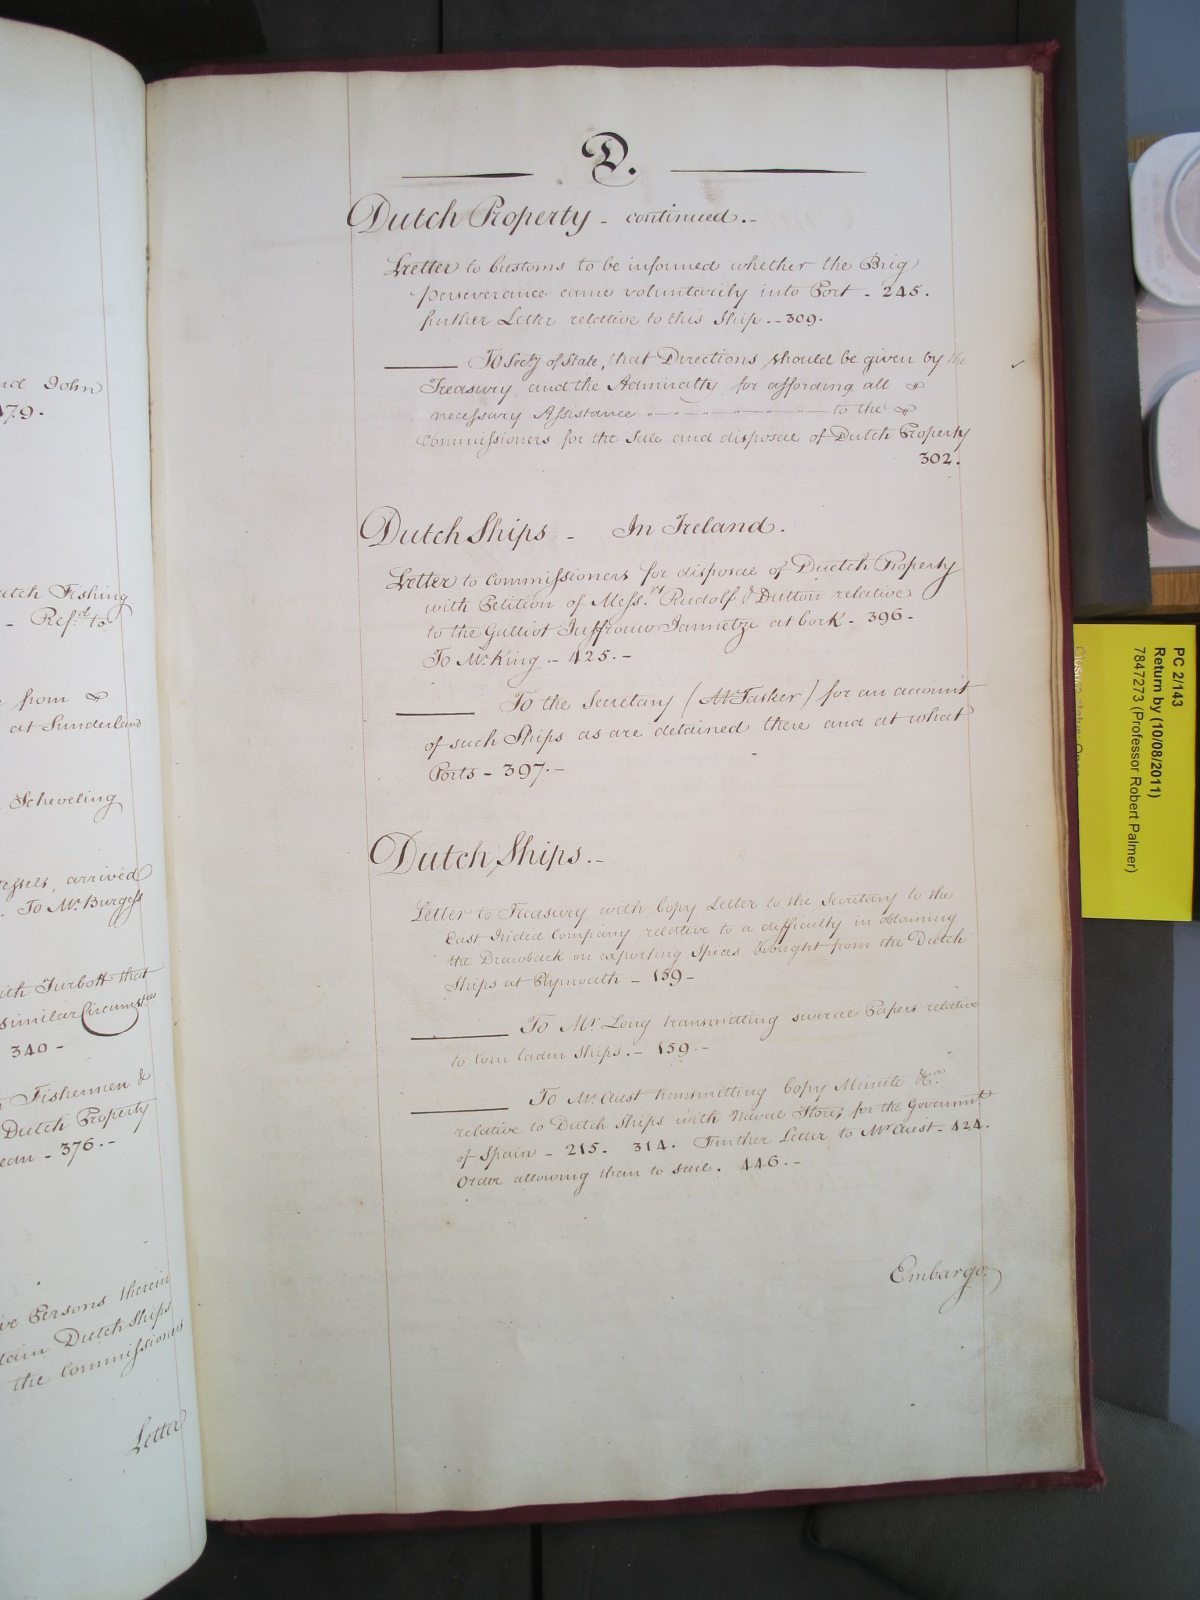 nd John
479.
utch Fishing
- Ref.d to
from &
at Sunderland
Scheveling
essels, arrived
. To Mr. Burgess
ith Turbott that
similar Circumst.es
340 -
Fishermen &
Dutch Property
- 376. -
Persons therein
Dutch Ships
the Commissioners
Letter
D.
Dutch Property - continued. -
Letter to Customs to be informed whether the Brig
perseverance came voluntarily into Port - 245.
further Letter relative to this Ship. - 309.
To Secty of State, that Directions should be given by the
Treasury and the Admiralty for affording all
necessary Assistance to the
Commissioners for the Sale and disposal of Dutch Property
302.
Dutch Ships - In Ireland.
Letter to Commissioners for disposal of Dutch Property
with Petition of Mess.rs Rudolf & Dutton relative
to the Galliot Juffrouw Jannetze at Cork - 396 -
To Mr. King - 425. -
To the Secretary (Mr Tasker) for an account
of such Ships as are detained there and at what
Ports - 397. -
Dutch Ships. -
Letter to Treasury with Copy Letter to the Secretary to the
East India Company relative to a difficulty in obtaining
the Drawback on exporting Spices brought from the Dutch
Ships at Plymouth - 159 -
To Mr. Long transmitting several Papers relative
to Corn laden Ships. - 159. -
To Mr. Aust transmitting Copy Minute &c.a
relative to Dutch Ships with Naval Stores for the Governmt
of Spain - 215. 314. Further Letter to Mr. Aust - 424.
Order allowing them to sail. 446. -
Embargo.
PC 2/143
Return by (10/08/2011)
7847273 (Professor Robert Palmer)
Closure status: Open